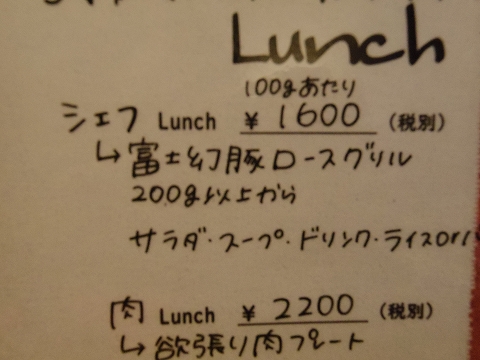 Lunch
100gあたり
シェフ Lunch ¥ 1600 (税別)
↳ 富士幻豚ロースグリル
200g以上から
サラダ・スープ・ドリンク・ライスor
肉 Lunch ¥ 2200 (税別)
↳ 欲張り肉プレート